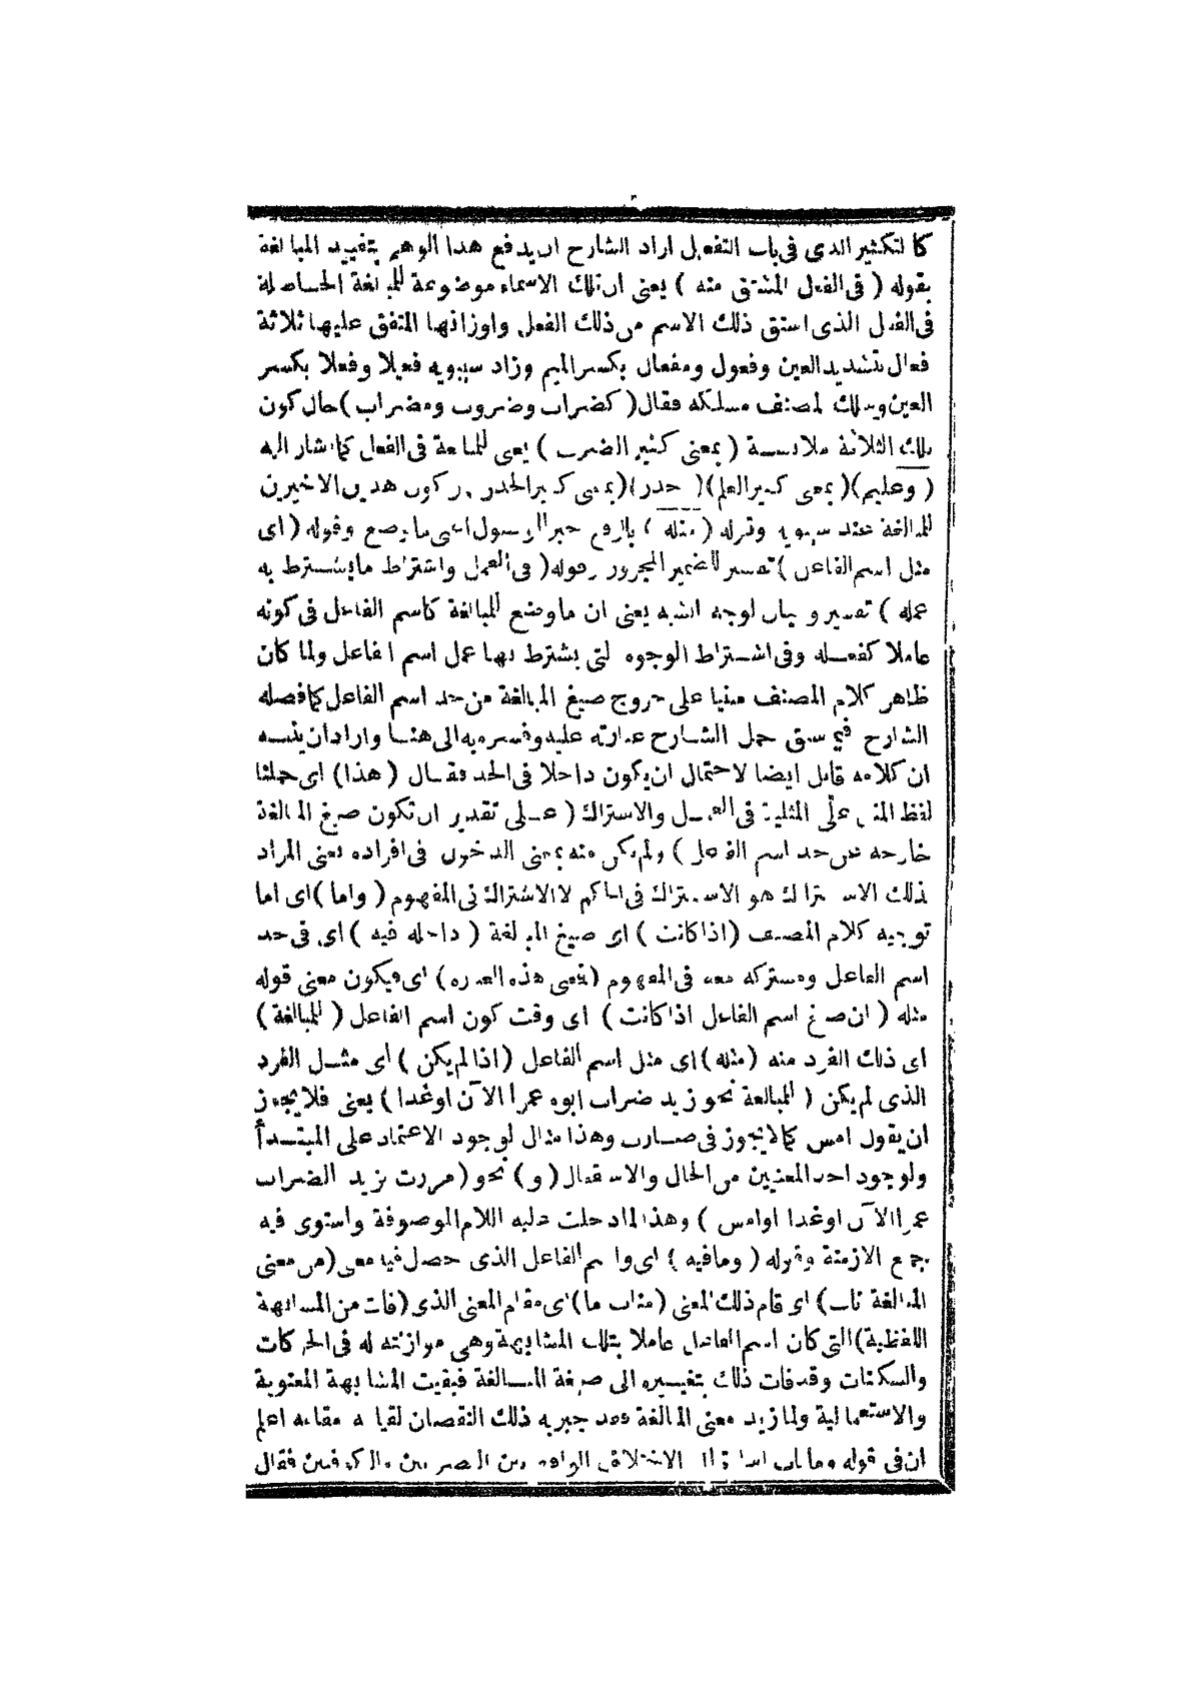 كالتكثير الذى فى باب التفعيل اراد الشارح ان يدفع هذا الوهم بتقييد المبالغة
بقوله ( فى الفعل المشتق منه ) يعنى ان تلك الاسماء موضوعة للمبالغة الحاصلة
فى الفعل الذى اشتق ذلك الاسم من ذلك الفعل واوزانها المتفق عليها ثلاثة
فعال بتشديد العين وفعول ومفعال بكسر الميم وزاد سيبويه فعيلا وفعلا بكسر
العين وسلك المصنف مسلكه فقال ( كضراب وضروب ومضراب ) حال كون
تلك الثلاثة ملابسة ( بمعنى كثير الضرب ) يعنى للمبالغة فى الفعل كما اشار اليه
( وعليم ) ( بمعنى كثير العلم ) ( حذر ) ( بمعنى كثير الحذر وكون هذين الاخيرين
للمبالغة عند سيبويه وقوله ( مثله ) بالرفع خبر الموصول اعنى ما وضع وقوله ( اى
مثل اسم الفاعل ) تفسير للضمير المجرور وقوله ( فى العمل واشتراط ما يشترط به
عمله ) تفسير وبيان لوجه الشبه يعنى ان ما وضع للمبالغة كاسم الفاعل فى كونه
عاملا كفعله وفى اشتراط الوجوه التى يشترط بها عمل اسم الفاعل ولما كان
ظاهر كلام المصنف مبنيا على خروج صيغ المبالغة من حد اسم الفاعل كما فصله
الشارح فيما سبق حمل الشارح عبارته عليه وفسره به الى هنا واراد ان ينبه
ان كلامه قابل ايضا لاحتمال ان يكون داخلا فى الحد فقال ( هذا ) اى حملنا
لفظ المثل على المثلية فى العمل والاشتراك ( على تقدير ان تكون صيغ المبالغة
خارجة عن حد اسم الفاعل ) ولم يكن منه بمعنى الدخول فى افراده يعنى المراد
بذلك الاشتراك هو الاشتراك فى الحكم لا الاشتراك فى المفهوم ( واما ) اى اما
توجيه كلام المصنف ( اذا كانت ) اى صيغ المبالغة ( داخلة فيه ) اى فى حد
اسم الفاعل ومشتركة معه فى المفهوم ( فمعنى هذه العبارة ) اى فيكون معنى قوله
مثله ( ان صيغ اسم الفاعل اذا كانت ) اى وقت كون اسم الفاعل ( للمبالغة )
اى ذلك الفرد منه ( مثله ) اى مثل اسم الفاعل ( اذا لم يكن ) اى مثل الفرد
الذى لم يكن ( للمبالغة نحو زيد ضراب ابوه عمرا الآن او غدا ) يعنى فلا يجوز
ان يقول امس كما لا يجوز فى ضارب وهذا مثال لوجود الاعتماد على المبتدأ
ولوجود احد المعنيين من الحال والاستقبال ( و ) نحو ( مررت بزيد الضراب
عمرا الآن او غدا او امس ) وهذا لما دخلت عليه اللام الموصوفة واستوى فيه
جميع الازمنة وقوله ( وما فيه ) اى واسم الفاعل الذى حصل فيه معنى ( من معنى
المبالغة ناب ) اى قام ذلك المعنى ( مناب ما ) اى مقام المعنى الذى ( فات من المشابهة
اللفظية ) التى كان اسم الفاعل عاملا بتلك المشابهة وهى موازنته له فى الحركات
والسكنات وقد فات ذلك بتغييره الى صيغة المبالغة فبقيت المشابهة المعنوية
والاستعمالية ولما زيد معنى المبالغة فقد جبر به ذلك النقصان لقيامه مقامه اعلم
ان فى قوله وما ناب اشارة الى الاختلاف الواقع بين البصريين والكوفيين فقال